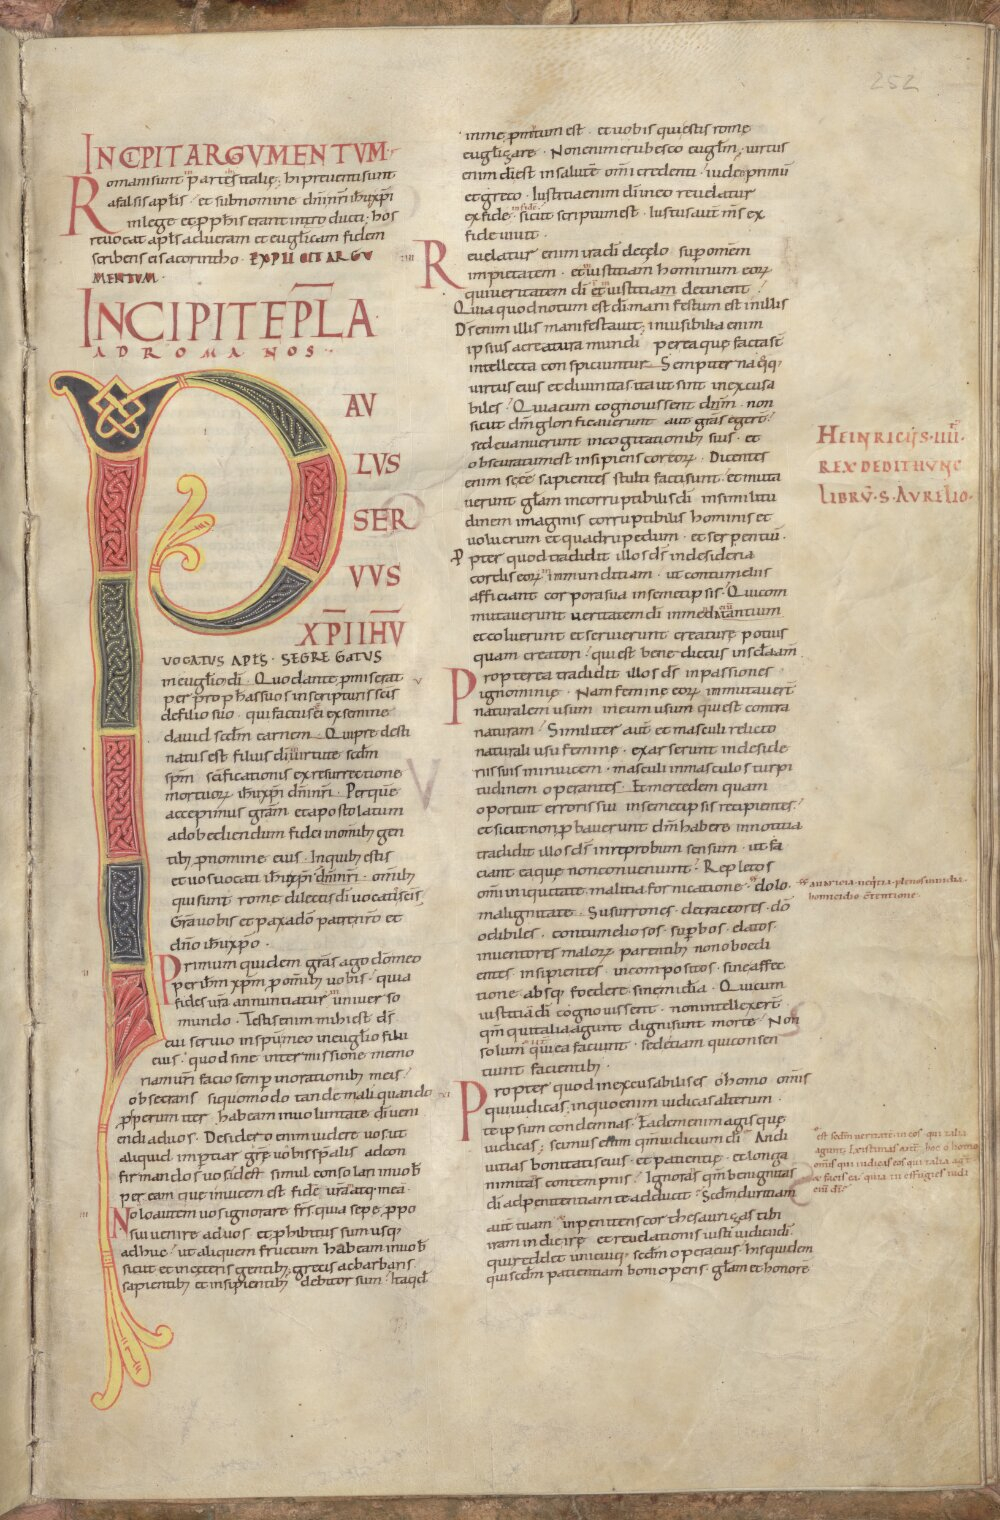 252
INCIPIT ARGVMENTVM
Romani sunt partes italię; hi preuenti sunt
a falsis apłis · et sub nomine dñi nri ihu xpi
in lege et pphis erant introducti; hos
reuocat apłs ad ueram et euglicam fidem
scribens eis a corintho · EXPLICIT ARGV
MENTVM ·
INCIPIT EPLA
AD ROMANOS ·
PAV
LVS
SER
VVS
XPI IHV
VOCATVS APLS · SEGREGATVS
in euglio di · Quod ante pmiserat
per pphas suos in scripturis scis
de filio suo · qui factus ei ex semine
dauid scdm carnem · Qui predesti
natus est filius di in uirtute scdm
spm scificationis ex resurrectione
mortuorꝝ ihu xpi dni nri · Per que
accepimus gram et apostolatum
ad obediendum fidei in omnibꝫ gen
tibꝫ p nomine eius · In quibꝫ estis
et uos uocati ihu xpi dni nri · omibꝫ
qui sunt rome dilectis di uocatis scis
Gra uobis et pax a do patre nro et
dno ihu xpo ·
Primum quidem gras ago do meo
per ihm xpm p omibꝫ uobis · quia
fides ura annuntiatur in uniuerso
mundo · Testis enim mihi est ds
cui seruio in spu meo in euglio filii
eius · quod sine intermissione memo
riam uri facio semp in orationibꝫ meis ·
obsecrans si quomodo tandem aliquando
psperum iter habeam in uoluntate di ueni
endi ad uos · Desidero enim uidere uos ut
aliquid impertiar gre uobis spalis ad con
firmandos uos id est simul consolari in uob
per eam que inuicem est fide ura atqꝫ mea ·
Nolo autem uos ignorare frs quia sepe ppo
sui uenire ad uos et phibitus sum usqꝫ
adhuc · ut aliquem fructum habeam in uob
sicut et in ceteris gentibꝫ; grecis ac barbaris
sapientibꝫ et insipientibꝫ debitor sum · Ita qd
in me pmtum est · et uobis qui estis rome
euglizare · Non enim erubesco euglm; uirtus
enim di est in salute omi credenti · iudeo primu
et greco · Iustitia enim di in eo reuelatur
ex fide in fide · sicut scriptum est · Iustus aut ms ex
fide uiuit ·
Reuelatur enim ira di de celo sup omem
impietatem · et iniustitiam hominum eorꝝ
qui ueritatem di in iustitiam detinent ·
Quia quod notum est di manifestum est in illis
Ds enim illis manifestauit; inuisibilia enim
ipsius a creatura mundi per ea que facta st
intellecta conspiciuntur · Sempiterna qꝫ
uirtus eius et diuinitas ita ut sint inexcusa
biles · Quia cum cognouissent dnm · non
sicut dm glorificauerunt aut gras egert ·
sed euanuerunt in cogitationibꝫ suis · et
obscuratum est insipiens cor eorꝝ · Dicentes
enim se ee sapientes stulti facti sunt · et muta
uerunt glam incorruptibilis di in similitu
dinem imaginis corruptibilis hominis et
uolucrum et quadrupedum · et serpentiu ·
Ppter quod tradidit illos ds in desideria
cordis eorꝝ in immunditiam · ut contumeliis
afficiant corpora sua in semetipsis · Qui com
mutauerunt ueritatem di in mendatium
et coluerunt et seruierunt creature potius
quam creatori · qui est benedictus in scla am
Propterea tradidit illos ds in passiones
ignominię · Nam feminę eorꝝ immutauert
naturalem usum in eum usum qui est contra
naturam · Similiter aut et masculi relicto
naturali usu feminę · exarserunt in deside
riis suis in inuicem · masculi in masculos turpi
tudinem operantes · Et mercedem quam
oportuit erroris sui in semetipsis recipientes ·
et sicut non pbauerunt dm habere in notitia
tradidit illos ds in reprobum sensum · ut fa
ciant ea que non conueniunt · Repletos
omi iniquitate malitia fornicatione · dolo ·
malignitate · Susurrones · detractores · do
odibiles · contumeliosos · supbos · elatos ·
inuentores malorꝝ parentibꝫ non oboedi
entes insipientes · incompositos · sine affec
tione absqꝫ foedere sine midia · Qui cum
iustitia di cognouissent · non intellexert
qm qui talia agunt digni sunt morte · Non
solum qui ea faciunt · sed etiam qui consen
tiunt facientibꝫ ·
Propter quod inexcusabilis es o homo omis
qui iudicas; in quo enim iudicas alterum ·
te ipsum condemnas · Eadem enim agis que
iudicas; scimus enim qm iudicium di · An di
uitias bonitatis eius et patientię · et longa
nimitas contempnis · Ignoras qm benignitas
di ad penitentiam te adducit · Scdm duritiam
aut tuam in penitens cor thesaurizas tibi
iram in die irę et reuelationis iusti iudicii di ·
qui reddet unicuiqꝫ scdm opera eius · his quidem
qui scdm patientiam boni operis · glam et honore
HEINRICUS · IIII ·
REX DEDIT HVNC
LIBRV · S · AVRELIO ·
auaricia · neqtia · plenos inuidia ·
homicidio ctentione ·
est scdm ueritate in eos qui talia
agunt · Existimas aut hoc o homo
omis qui iudicas eos qui talia agt
et facis ea · quia tu effugies iudi
ciu di